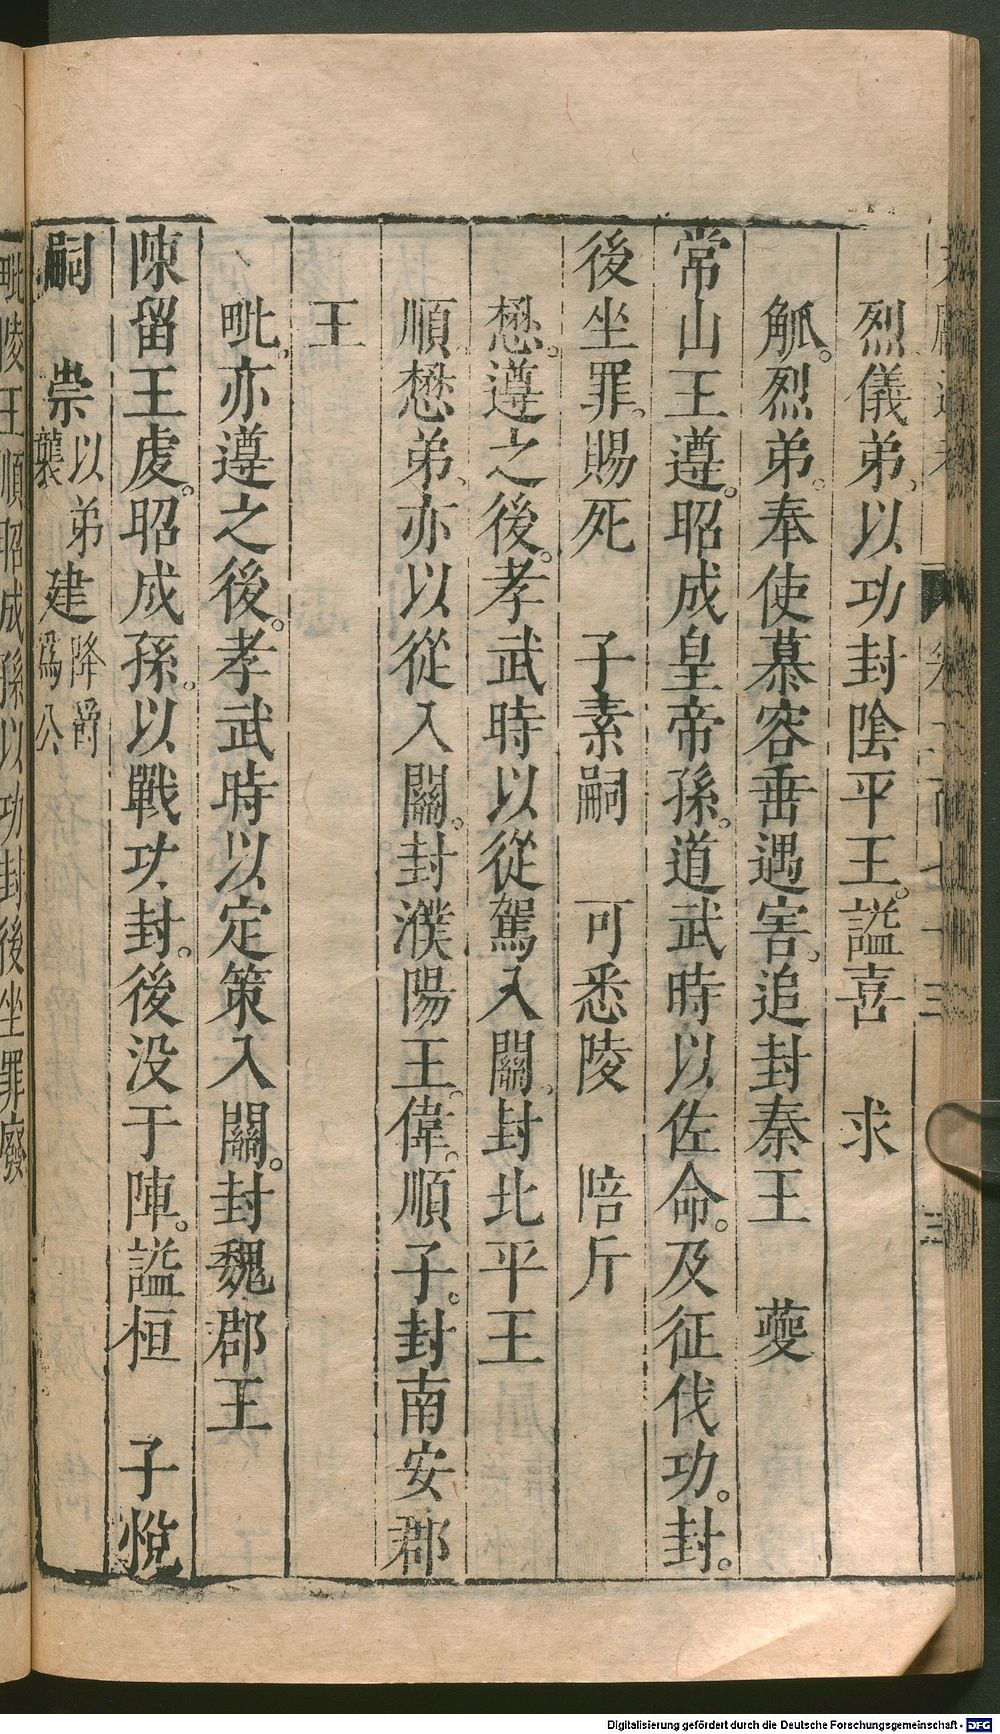 烈儀弟、以功封陰平王。謚喜　求
觚。烈弟。奉使慕容垂遇害、追封秦王　虁
常山王遵。昭成皇帝孫。道武時以佐命。及征伐功。封。
後坐罪。賜死　子素嗣　可悉陵　陪斤
懋。遵之後。孝武時以從駕入關、封北平王
順懋弟、亦以從入關。封濮陽王。偉。順子。封南安郡
王
毗。亦遵之後。孝武時以定策入關。封魏郡王
陳留王虔。昭成孫。以戰功封。後没于陣。謚桓　子悅
嗣　崇以弟襲　建降爵爲公
毗陵王順昭成孫以功封後坐罪廢
Digitalisierung gefördert durch die Deutsche Forschungsgemeinschaft - DFG